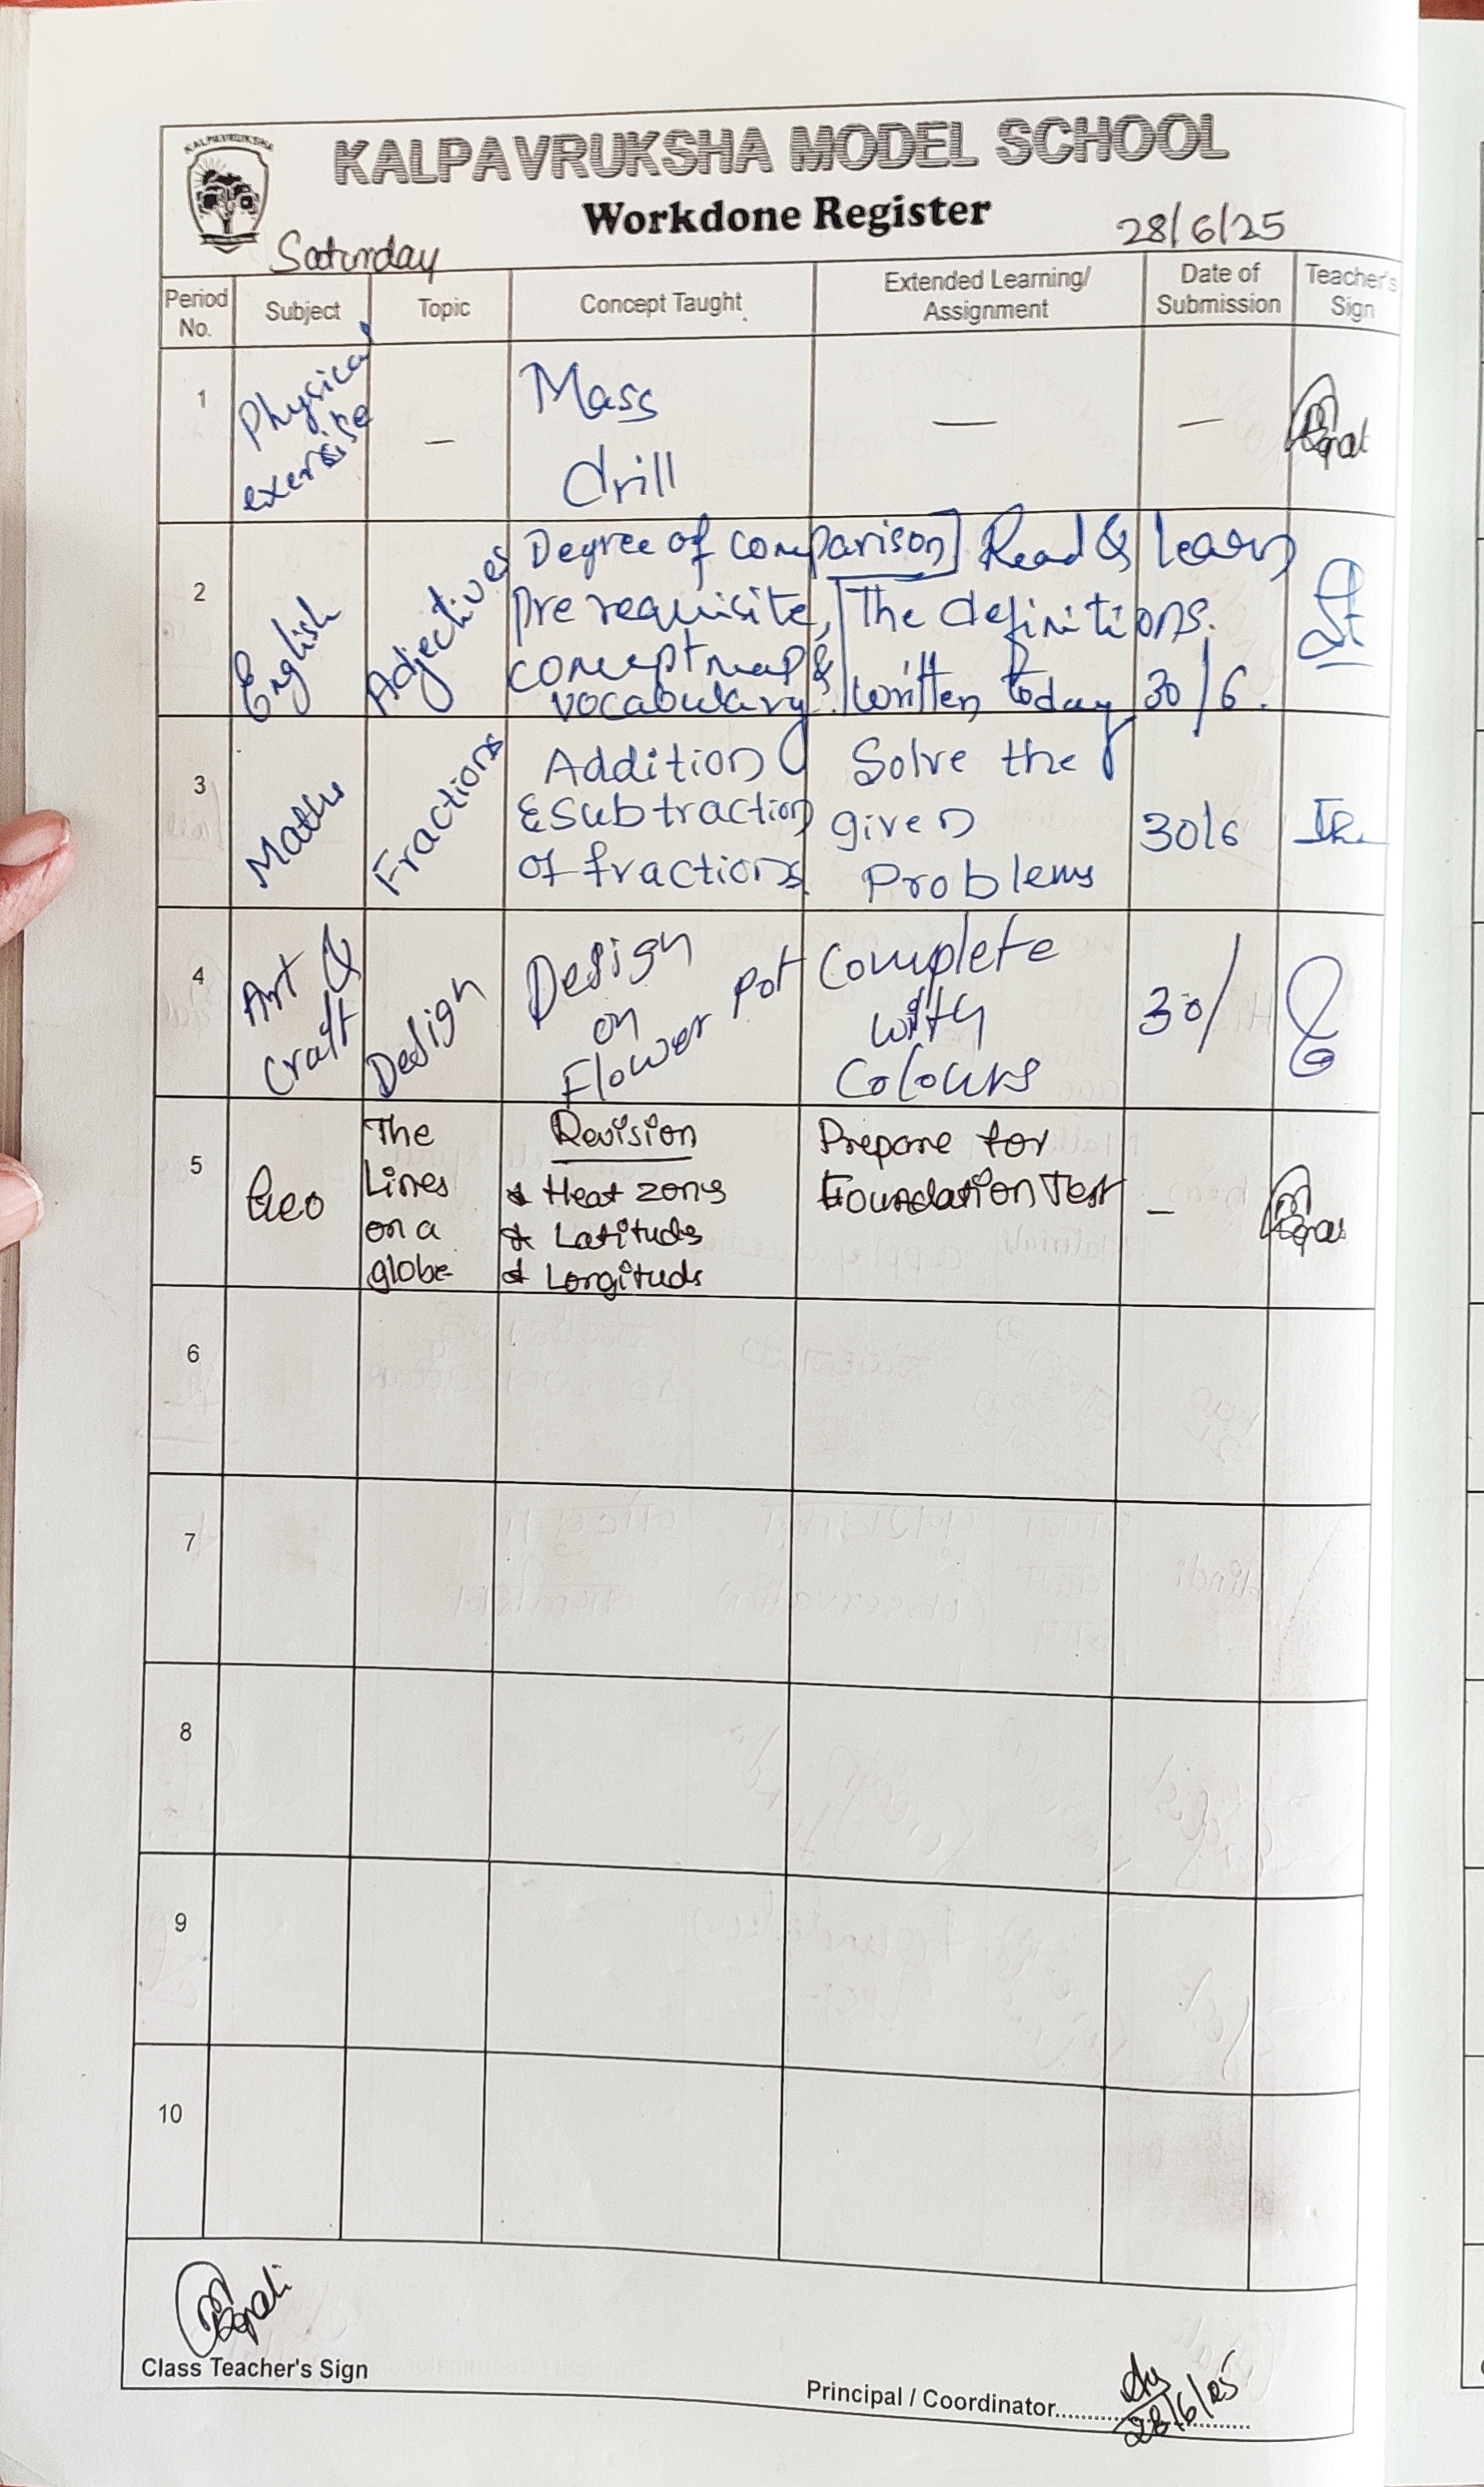 KALPAVRUKSHA
KALPAVRUKSHA MODEL SCHOOL
Workdone Register
Saturday
28/6/25
Period No.
Subject
Topic
Concept Taught
Extended Learning/ Assignment
Date of Submission
Teacher's Sign
1
Physical
exersise
-
Mass
drill
—
—
2
English
Adjectives
Degree of comparison
Pre requisite,
conceptmap &
vocabulary.
Read & learn
The definitions.
written today
30/6.
3
Maths
Fractions
Addition
& subtraction
of fractions.
Solve the
given
Problems
30/6
4
Art &
Craft
Design
Design
on
Flower pot
Complete
with
Colours
30/
5
Geo
The
Lines
on a
globe
Revision
* Heat zons
* Latituds
* Longituds
Prepare for
Foundation Test
-
6
7
8
9
10
Class Teacher's Sign
Principal / Coordinator
28/6/25